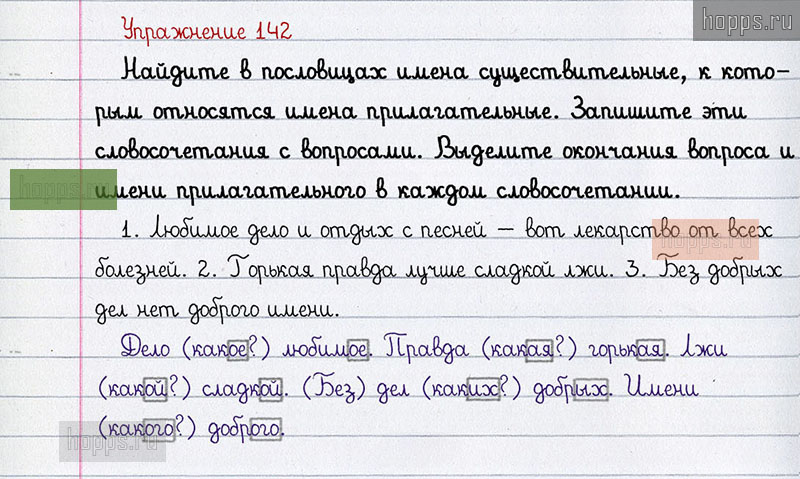 hopps.ru
Упражнение 142
Найдите в пословицах имена существительные, к кото-
рым относятся имена прилагательные. Запишите эти
словосочетания с вопросами. Выделите окончания вопроса и
hopps.ru имени прилагательного в каждом словосочетании.
1. Любимое дело и отдых с песней – вот лекарство от всех
hopps.ru
болезней. 2. Горькая правда лучше сладкой лжи. 3. Без добрых
дел нет доброго имени.
Дело (какое?) любимое. Правда (какая?) горькая. Лжи
(какой?) сладкой. (Без) дел (каких?) добрых. Имени
(какого?) доброго.
hopps.ru